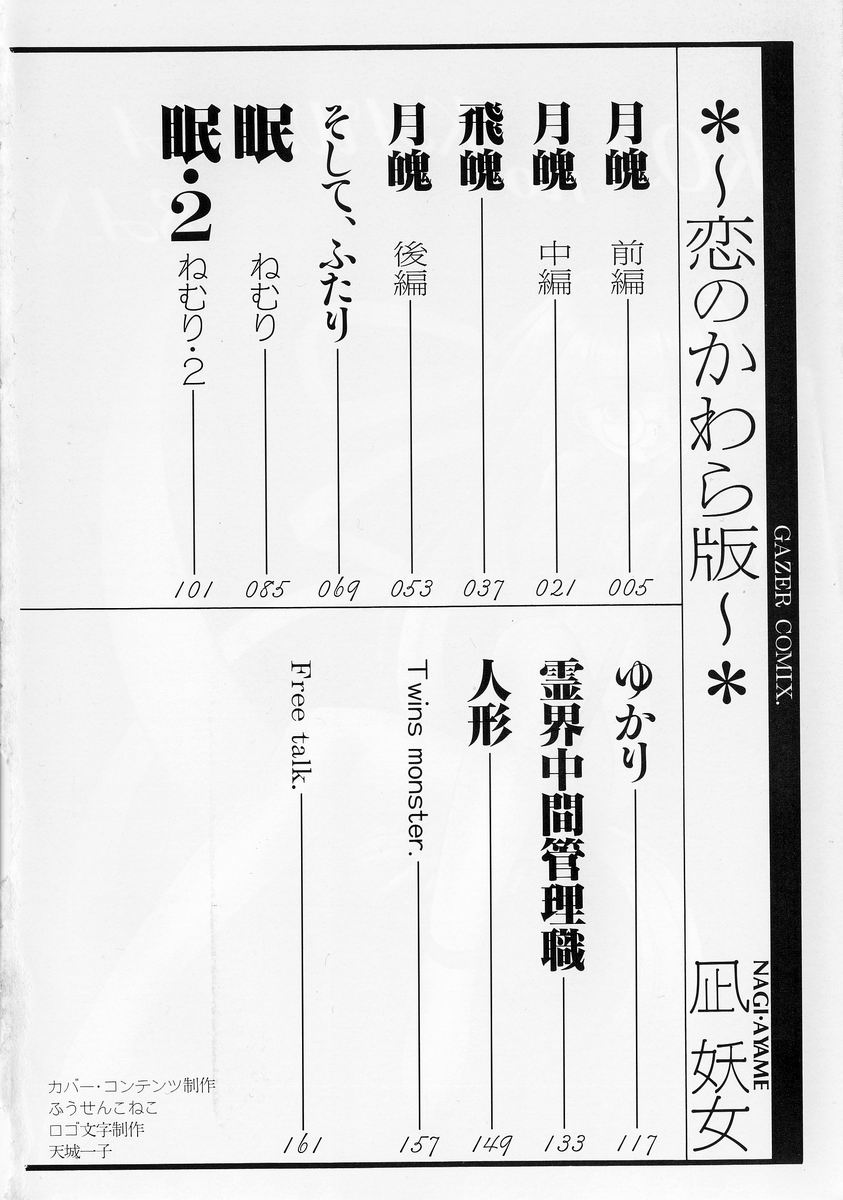 GAZER COMIX.
＊〜恋のかわら版〜＊
NAGI・AYAME
凪 妖女
月魄 前編 005
月魄 中編 021
飛魄 037
月魄 後編 053
そして、ふたり 069
眠 ねむり 085
眠・2 ねむり・2 101
ゆかり 117
霊界中間管理職 133
人形 149
Twins monster. 157
Free talk. 161
カバー・コンテンツ制作
ふうせんこねこ
ロゴ文字制作
天城一子